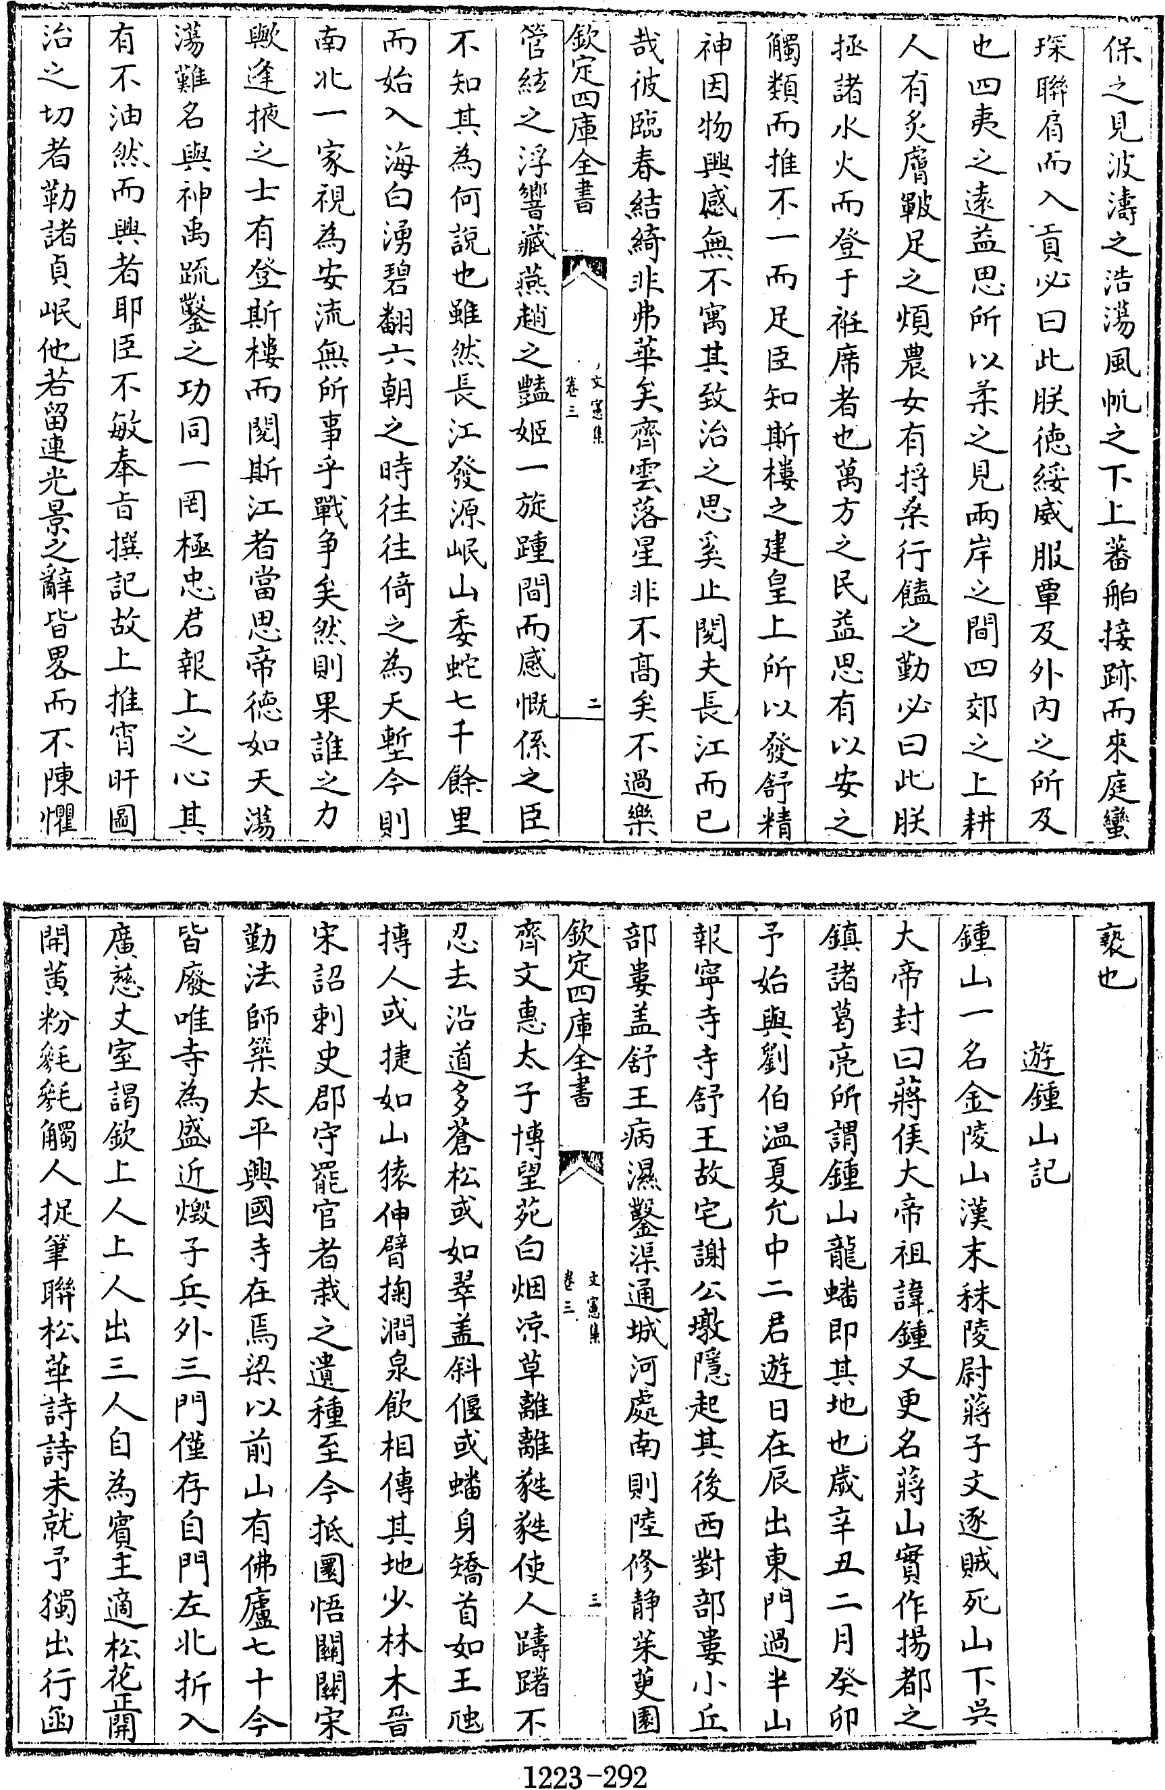 保之見波濤之浩蕩風帆之下上蕃舶接跡而來庭蠻
琛聯肩而入貢必曰此朕德綏威服覃及外内之所及
也四夷之遠益思所以柔之見兩岸之間四郊之上耕
人有炙膚皸足之煩農女有捋桑行饁之勤必曰此朕
拯諸水火而登于袵席者也萬方之民益思有以安之
觸類而推不一而足臣知斯樓之建皇上所以發舒精
神因物興感無不寓其致治之思奚止閱夫長江而已
哉彼臨春結綺非弗華矣齊雲落星非不髙矣不過樂
欽定四庫全書
文憲集
卷三
二
管絃之淫響藏燕趙之豔姬一旋踵間而感慨係之臣
不知其為何説也雖然長江發源岷山委蛇七千餘里
而始入海白湧碧翻六朝之時往往倚之為天塹今則
南北一家視為安流無所事乎戰争矣然則果誰之力
歟逢掖之士有登斯樓而閱斯江者當思帝德如天蕩
蕩難名與神禹疏鑿之功同一罔極忠君報上之心其
有不油然而興者耶臣不敏奉旨撰記故上推宵旰圖
治之切者勒諸貞珉他若留連光景之辭皆畧而不陳懼
䙝也
遊鍾山記
鍾山一名金陵山漢末秣陵尉蔣子文逐賊死山下吳
大帝封曰蔣侯大帝祖諱鍾又更名蔣山實作揚都之
鎮諸葛亮所謂鍾山龍蟠即其地也嵗辛丑二月癸卯
予始與劉伯温夏允中二君遊日在辰出東門過半山
報寧寺寺舒王故宅謝公墩隱起其後西對部婁小丘
部婁盖舒王病濕鑿渠通城河處南則陸修静茱萸園
欽定四庫全書
文憲集
卷三
三
齊文惠太子博望苑白烟凉草離離蕤蕤使人躊躇不
忍去沿道多蒼松或如翠盖斜偃或蟠身矯首如王虺
搏人或捷如山猿伸臂掬澗泉飲相傳其地少林木晉
宋詔刺史郡守罷官者栽之遺種至今抵圜悟關關宋
勤法師築太平興國寺在焉梁以前山有佛廬七十今
皆廢唯寺為盛近燬于兵外三門僅存自門左北折入
廣慈丈室謁欽上人上人出三人自為賓主適松花正開
開黄粉毿毿觸人捉筆聯松華詩詩未就予獨出行函
1223-292